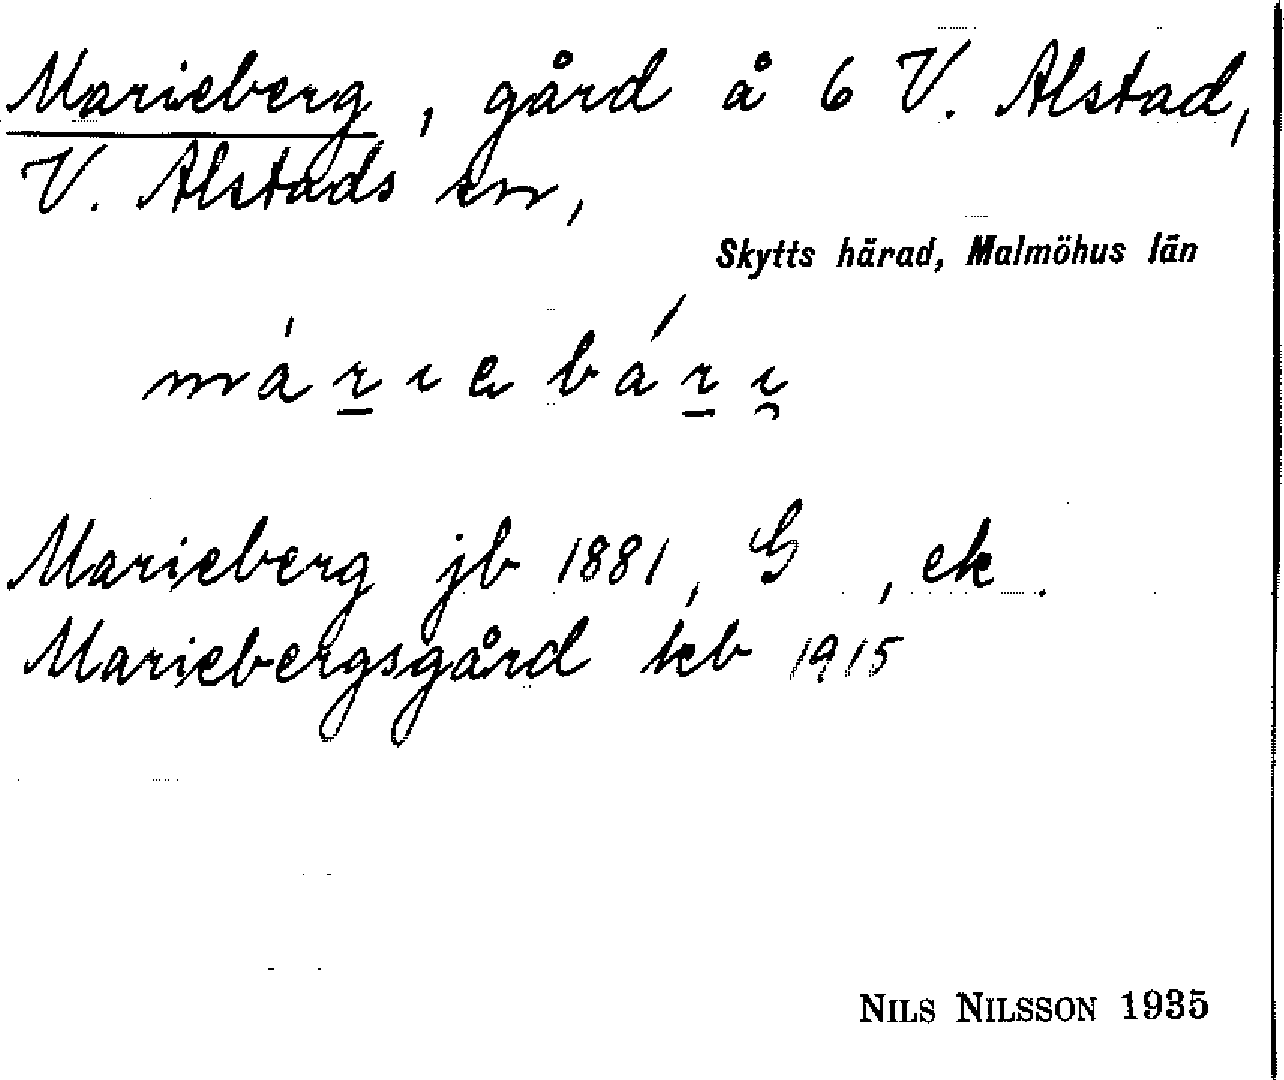 Marieberg, gård å 6 V. Alstad,
V. Alstads sn,
Skytts härad, Malmöhus län
Marieberg jb 1881, G, ek.
Mariebergsgård kb 1915
NILS NILSSON 1935